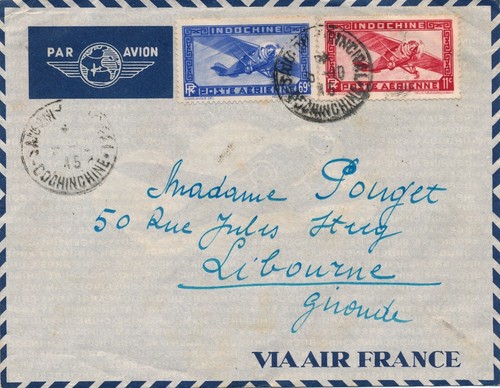 PAR AVION
INDOCHINE
RF POSTE AERIENNE 69c
INDOCHINE
POSTE AERIENNE 11c
COCHINCHINE
10
45
45
COCHINCHINE
Madame Pouget
50 Rue Jules Steeg
Libourne
Gironde
VIA AIR FRANCE